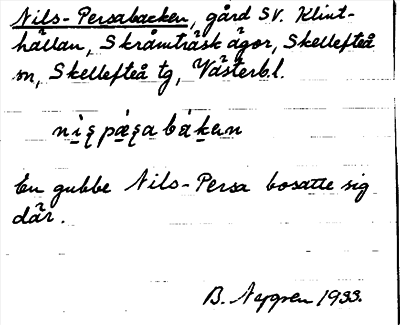 Nils-Persabacken, gård SV. Klint-
hällan, Skråmträsk ägor, Skellefteå
sn, Skellefteå tg, Västerb.l.
En gubbe Nils-Persa bosatte sig
där.
B. Nygren 1933.